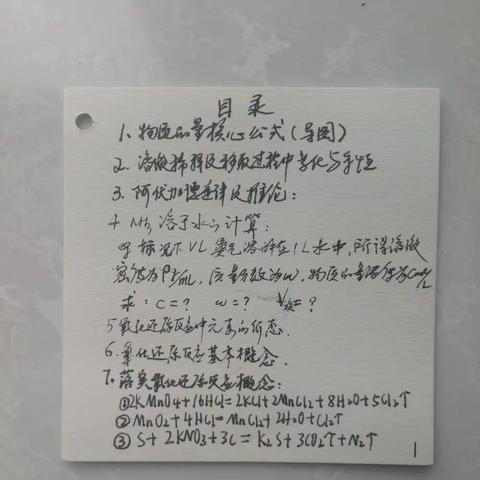 目录
1、物质的量核心公式(导图)
2、溶液稀释及移取过程中变化与守恒
3、阿伏加德罗定律及推论:
4 NH3溶于水的计算:
标况下VL 氨气溶解在1L水中,所得溶液
密度为ρg/mL,质量分数为w,物质的量浓度为Cmol/L
求:c=? w=? V液=?
5氧化还原反应中元素的价态.
6.氧化还原反应基本概念.
7.落实氧化还原反应概念:
①2KMnO4+16HCl=2KCl+2MnCl2+8H2O+5Cl2↑
②MnO2+4HCl=MnCl2+2H2O+Cl2↑
③S+2KNO3+3C=K2S+3CO2↑+N2↑
1